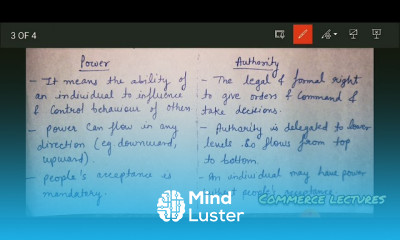 3 OF 4
Power
- It means the ability of
an individual to influence
& control behaviour of others.
- Power can flow in any
direction (eg. downward,
upward).
- People's acceptance is
mandatory.
Authority
- The legal & formal right
to give orders & command &
take decisions.
- Authority is delegated to lower
levels. So flows from top
to bottom.
- An individual may have power
people's acceptance
COMMERCE LECTURES
Mind
Luster